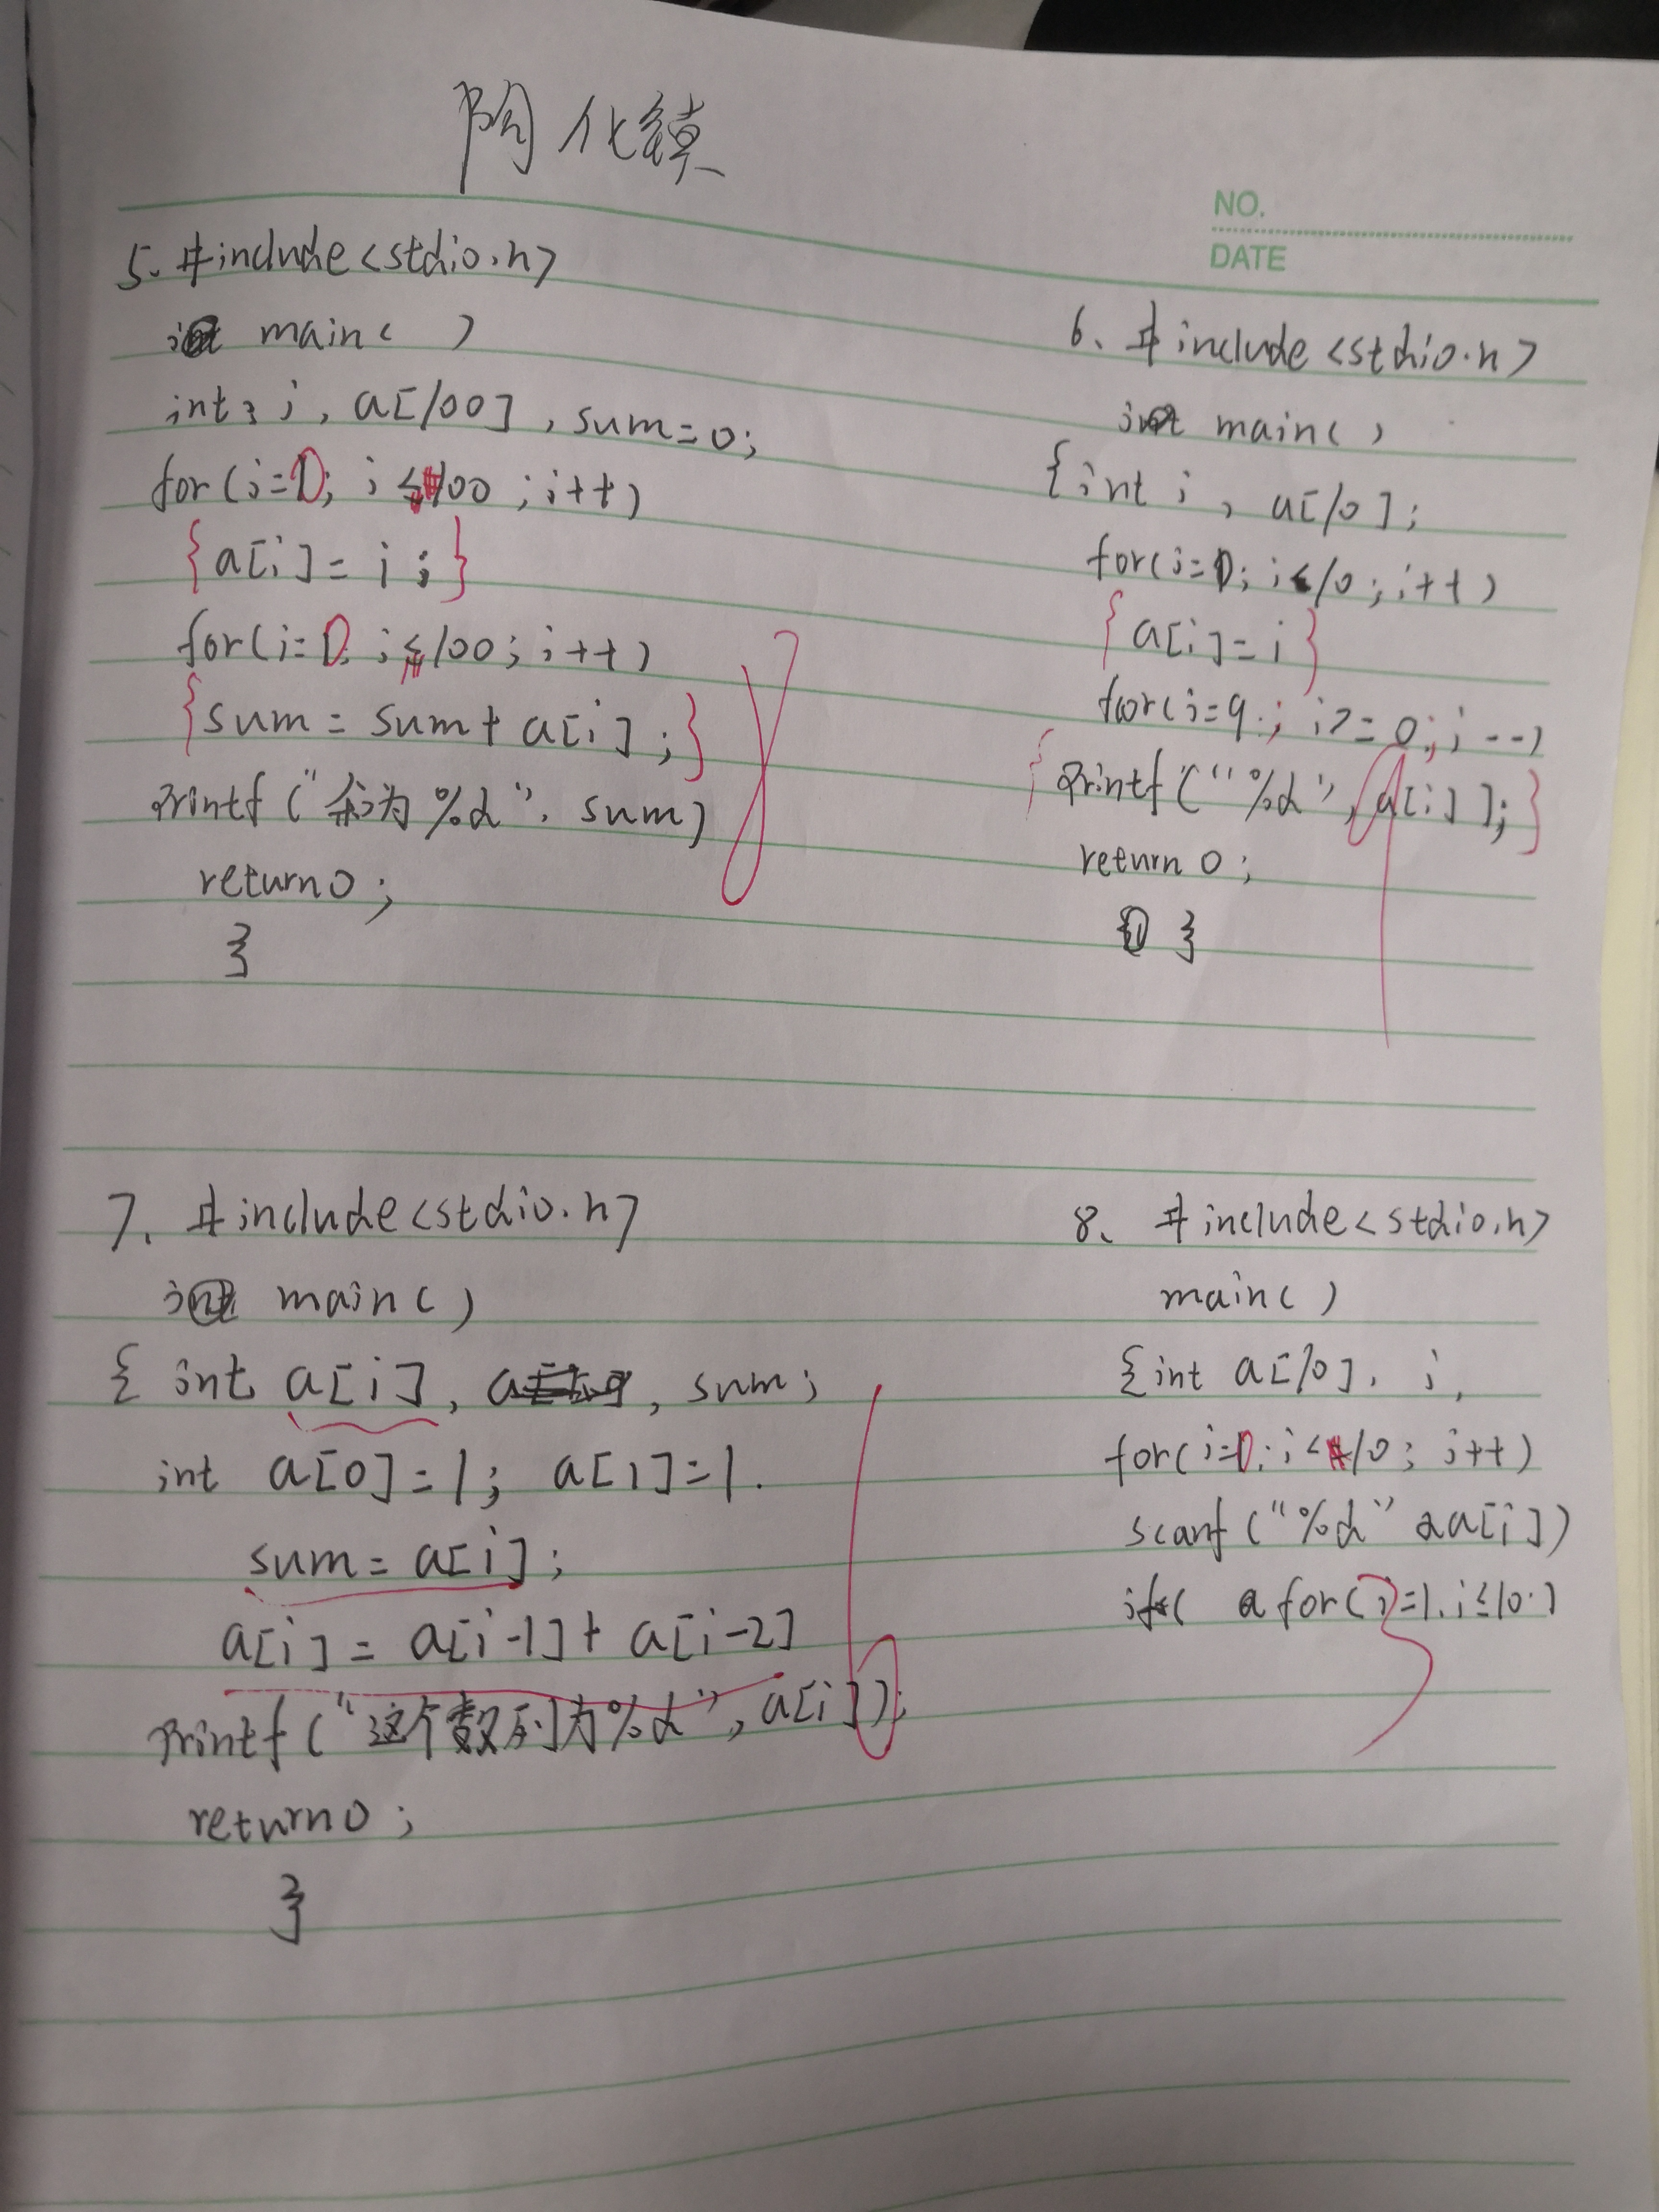 陶化镇
NO.
DATE
5. #include<stdio.h>
main( )
int i, a[100], sum=0;
for(i=0; i<100; i++)
{a[i]=i;}
for(i=0; i<100; i++)
{sum=sum+a[i];}
printf("和为%d", sum)
return 0;
}
6、#include<stdio.h>
int main()
{int i, a[10];
for(i=0; i<10; i++)
{a[i]=i}
for(i=9; i>=0; i--)
{printf("%d", a[i]);}
return 0;
}
7. #include<stdio.h>
int main()
{ int a[i], sum;
int a[0]=1; a[1]=1.
sum=a[i];
a[i]=a[i-1]+a[i-2]
printf("这个数列为%d", a[i]);
return 0;
}
8、#include<stdio.h>
main()
{int a[10], i,
for(i=0; i<10; i++)
scanf("%d" &a[i])
for(i=1, i≤10.)